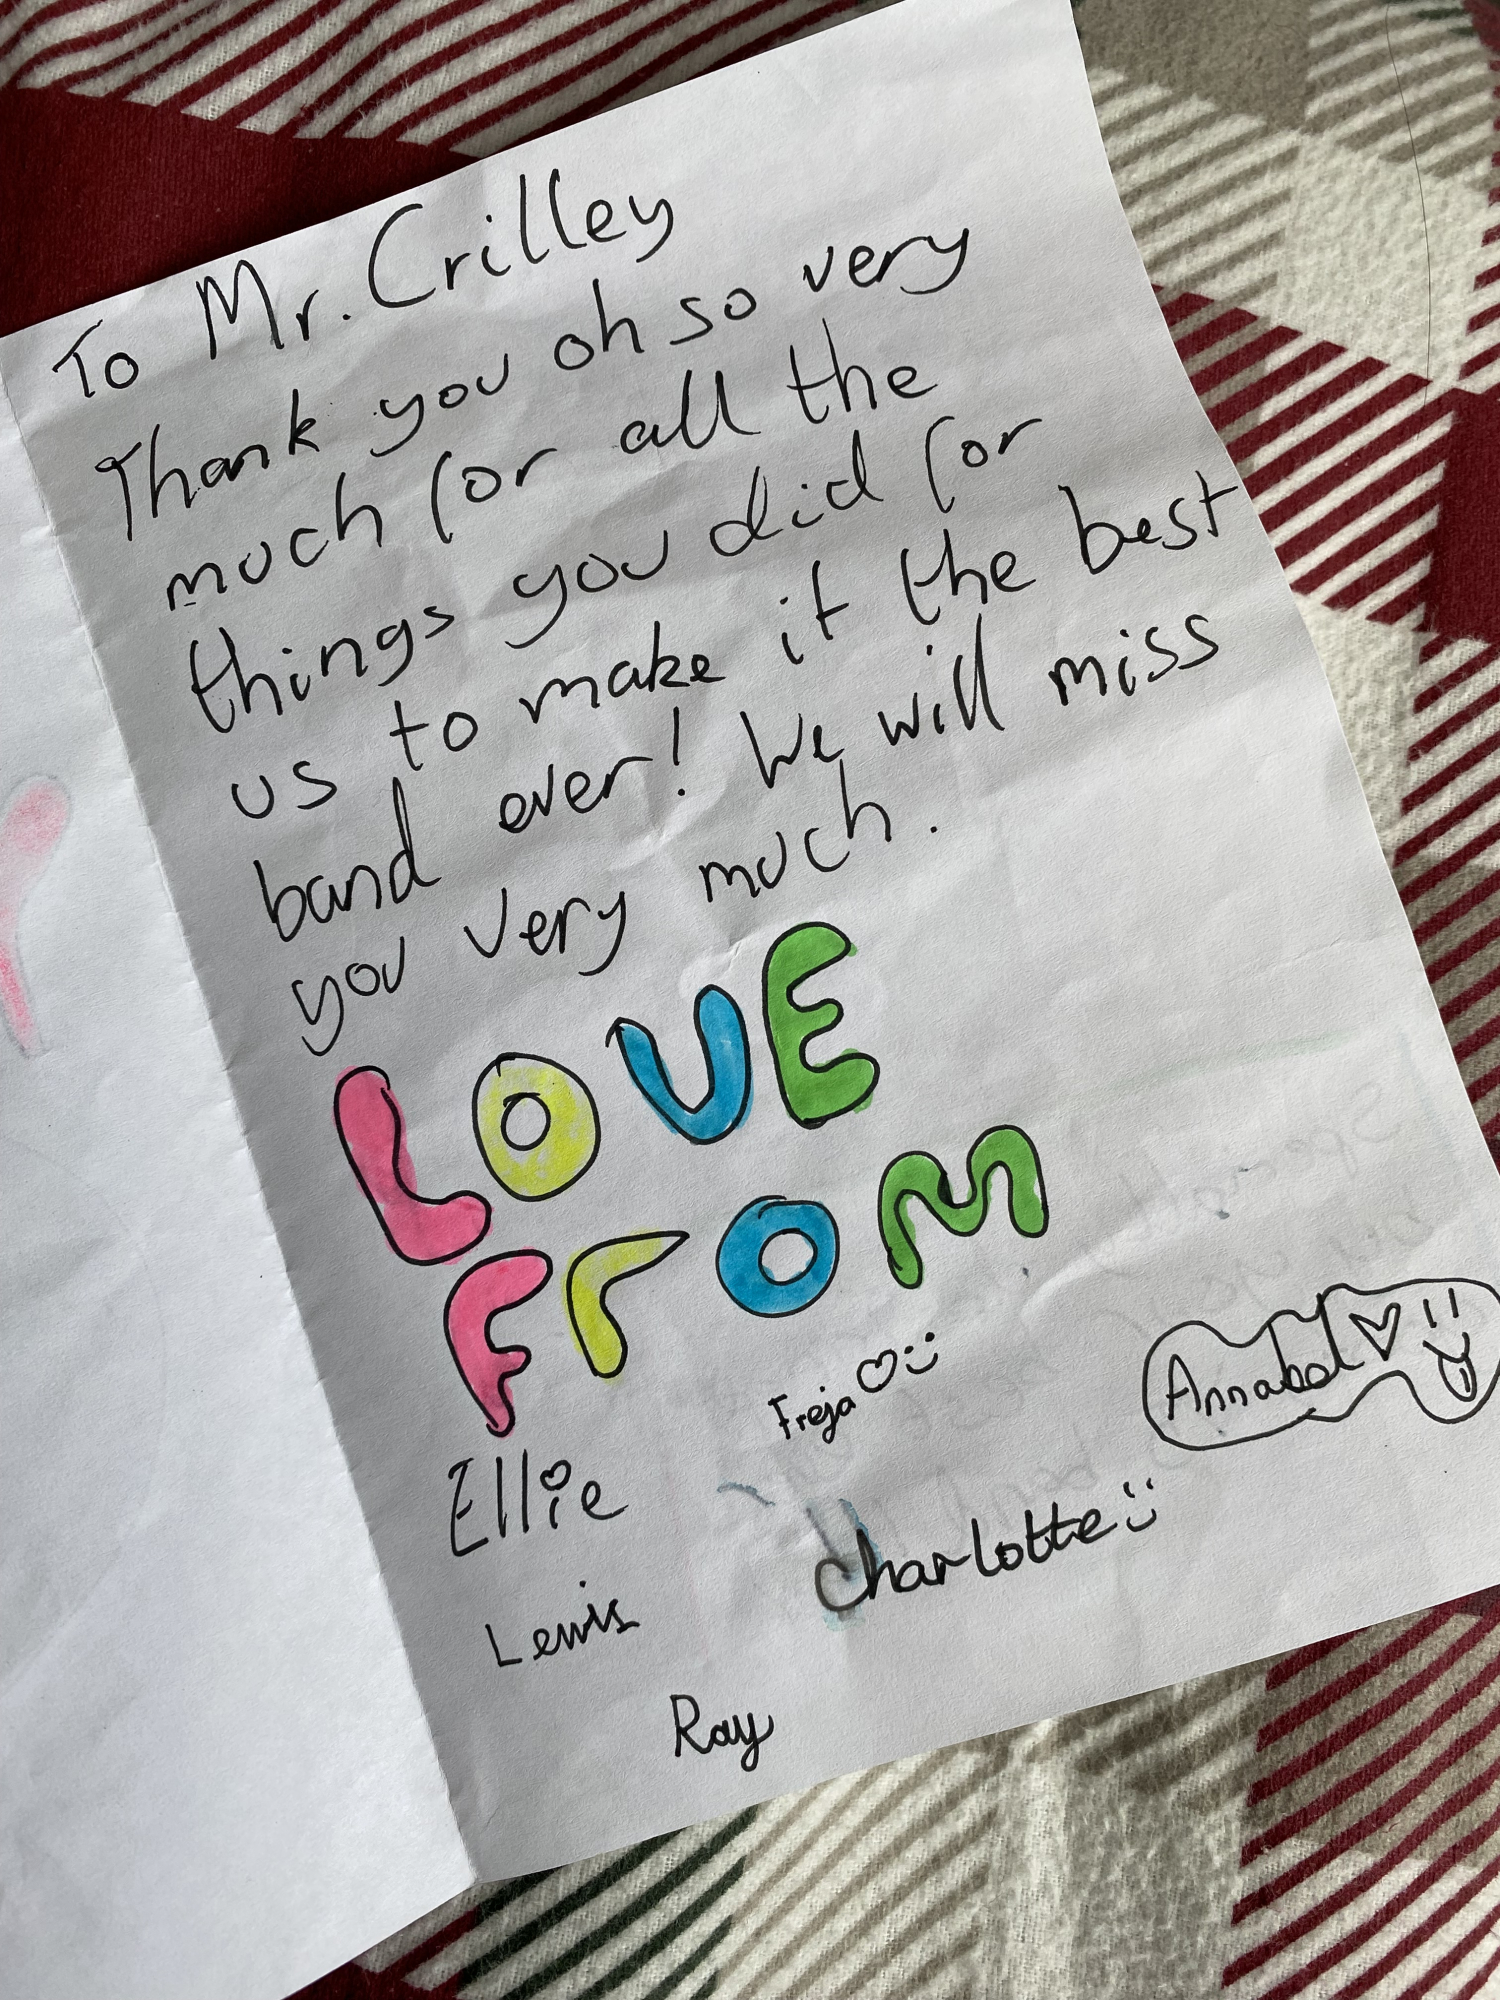 To Mr. Crilley
Thank you oh so very
much for all the
things you did for
us to make it the best
band ever! We will miss
you very much.
LOVE
FrOM
Freja ♡:)
Annabel ♡
Ellie
Charlotte :)
Lewis
Ray